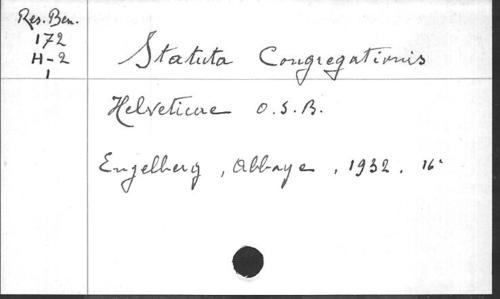 Res. Ben.
172
H-2
1
Statuta Congregationis
Helveticae O.S.B.
Engelberg, Abbaye, 1932. 16°